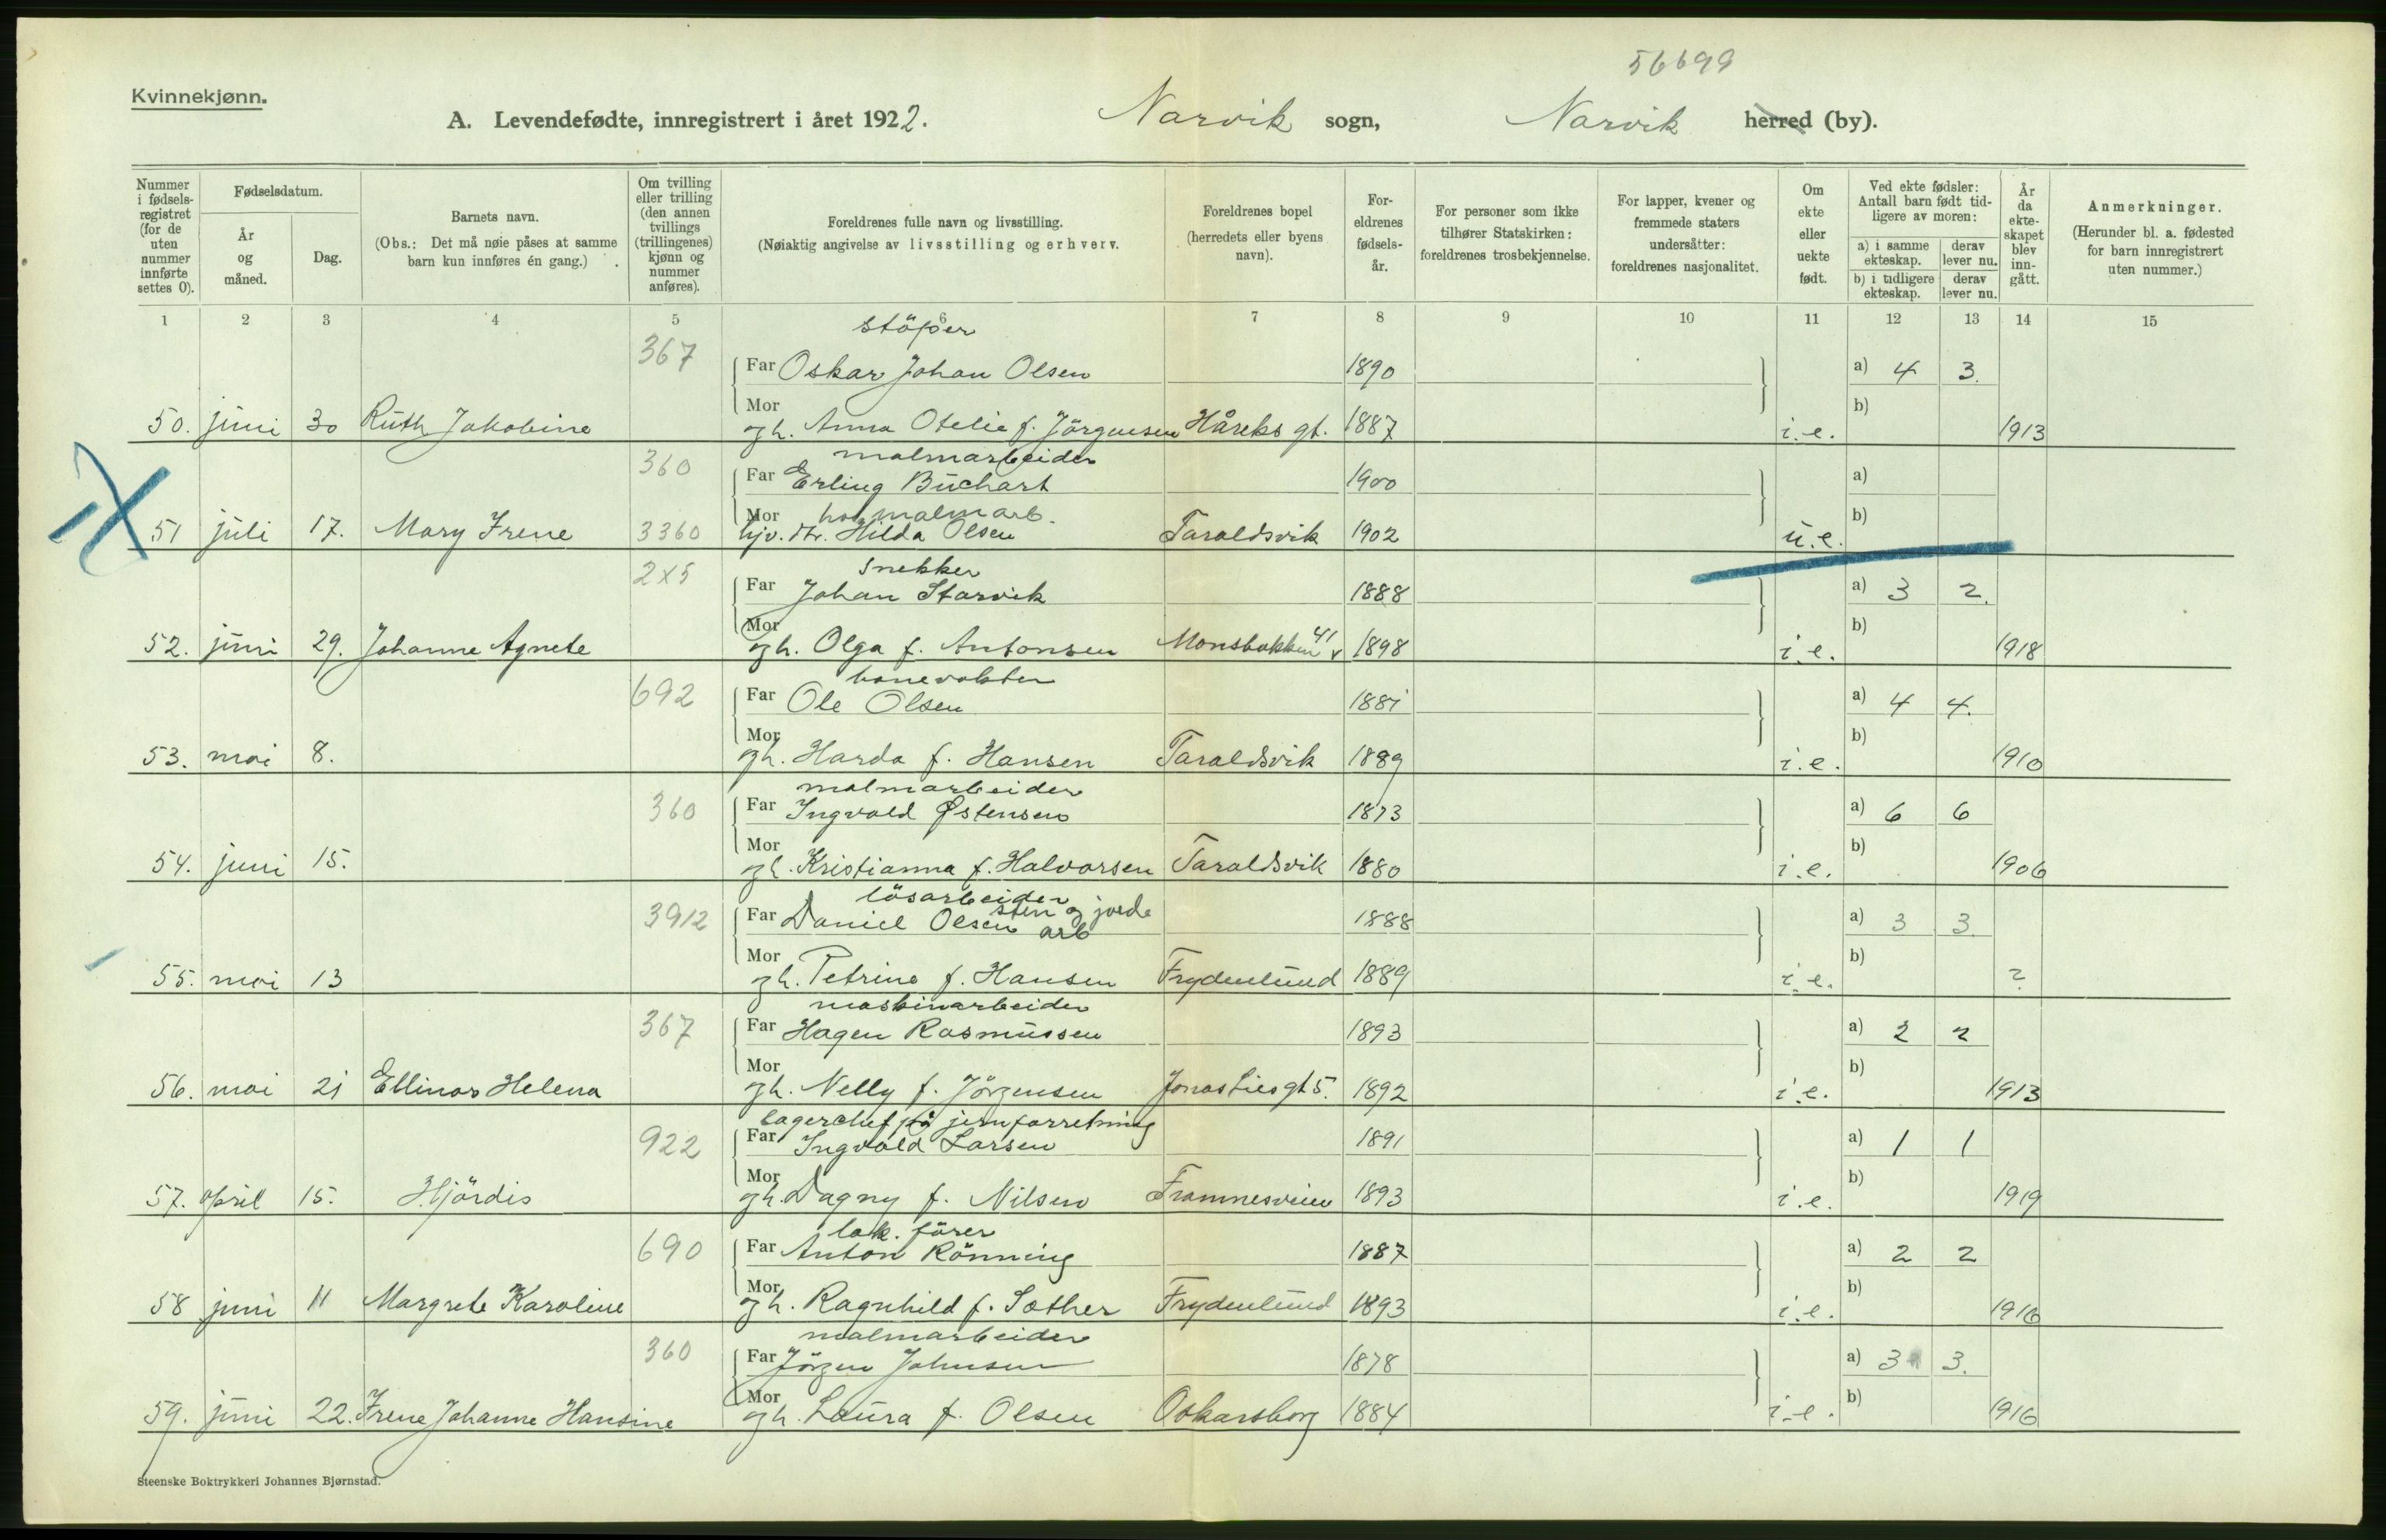 56699
Kvinnekjønn.
A. Levendefødte, innregistrert i året 1922. Narvik sogn, Narvik herred (by).
Nummer i fødselsregistret (for de uten nummer innførte settes 0).
Fødselsdatum.
År og måned.
Dag.
Barnets navn.
(Obs.: Det må nøie påses at samme barn kun innføres én gang.)
Om tvilling eller trilling (den annen tvillings (trillingenes) kjønn og nummer anføres).
Foreldrenes fulle navn og livsstilling.
(Nøiaktig angivelse av livsstilling og erhverv.
Foreldrenes bopel (herredets eller byens navn).
Foreldrenes fødselsår.
For personer som ikke tilhører Statskirken: foreldrenes trosbekjennelse.
For lapper, kvener og fremmede staters undersåtter: foreldrenes nasjonalitet.
Om ekte eller uekte født.
Ved ekte fødsler: Antall barn født tidligere av moren:
a) i samme ekteskap. derav lever nu.
b) i tidligere ekteskap. derav lever nu.
År da ekteskapet blev inngått.
Anmerkninger.
(Herunder bl. a. fødested for barn innregistrert uten nummer.)
1 2 3 4 5 6 7 8 9 10 11 12 13 14 15
støper
367 Far Oskar Johan Olsen 1890 a) 4 3.
Mor b)
50. juni 30 Ruth Jakobine gh. Anna Otelie f. Jörgensen Håreks gt. 1887 i.e. 1913
malmarbeider
360 Far Erling Buchart 1900 a)
Mor malmarb. b)
51 juli 17. Mary Irene 3360 Hilda Olsen Taraldsvik 1902 u.e.
snekker
2x5 Far Johan Starvik 1888 a) 3 2.
Mor b)
52. juni 29. Johanne Agnete gh. Olga f. Antonsen Monsbakken 41 1898 i.e. 1918
banevokter
692 Far Ole Olsen 1881 a) 4 4.
Mor b)
53. mai 8. gh. Harda f. Hansen Taraldsvik 1889 i.e. 1910
malmarbeider
360 Far Ingvald Østensen 1873 a) 6 6
Mor b)
54. juni 15. gh. Kristianna f. Halvorsen Taraldsvik 1880 i.e. 1906
lösarbeider
3912 Far Daniel Olsen sten og jordarb 1888 a) 3 3
Mor b)
55. mai 13 gh. Petrine f. Hansen Frydenlund 1889 i.e. ?
maskinarbeider
367 Far Hagen Rasmussen 1893 a) 2 2
Mor b)
56. mai 21 Ellinor Helena gh. Nelly f. Jörgensen Jonas Lies gt 5. 1892 i.e. 1913
lagerchef på jernforretning
922 Far Ingvald Larsen 1891 a) 1 1
Mor b)
57. april 15. Hjördis gh. Dagny f. Nilsen Framnesveien 1893 i.e. 1919
lok. förer
690 Far Anton Rönning 1887 a) 2 2
Mor b)
58 juni 11 Margrete Karoline gh. Ragnhild f. Sæther Frydenlund 1893 i.e. 1916
malmarbeider
360 Far Jörgen Johnsen 1878 a) 3 3.
Mor b)
59. juni 22. Irene Johanne Hansine gh. Laura f. Olsen Oskarsborg 1884 i.e. 1916
Steenske Boktrykkeri Johannes Bjørnstad.